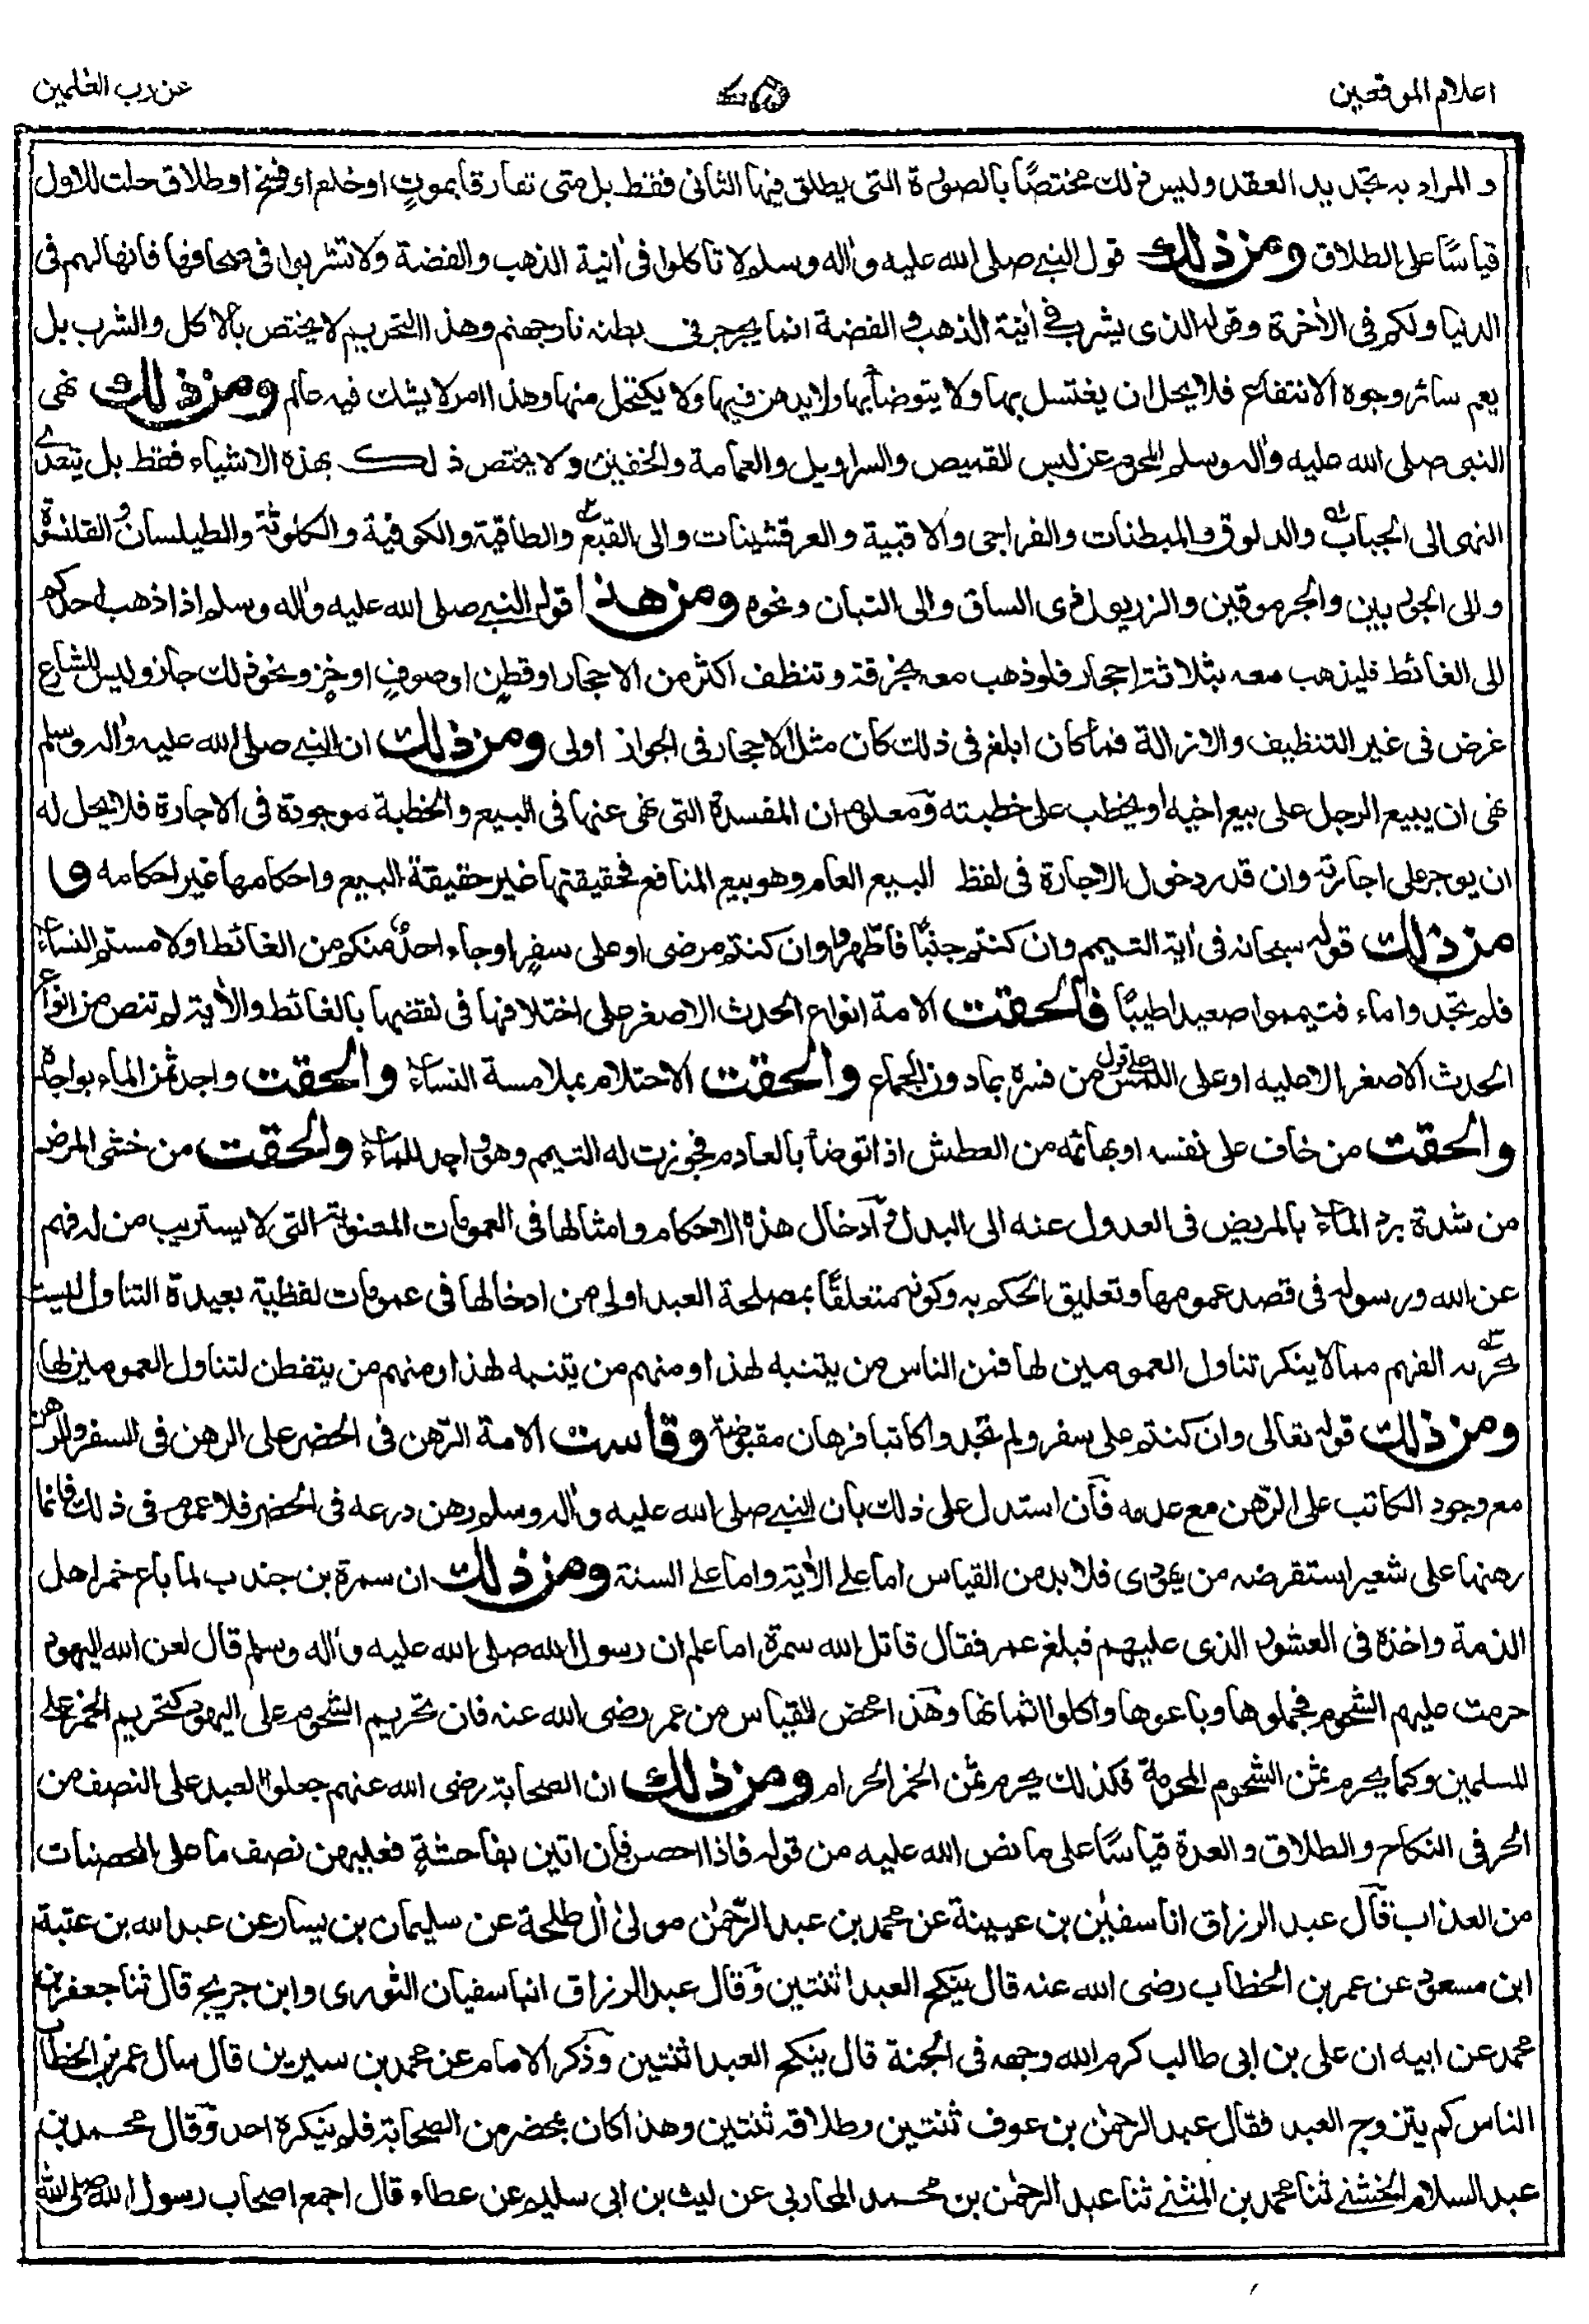 اعلام الموقعين
عن رب العلمين
و المراد به تجديد العقد وليس ذلك مختصًا بالصورة التى يطلق فيها الثانى فقط بل متى تفارقا بموتٍ او خلع او فسخ او طلاق حلت للاول
قياسًا على الطلاق ومن ذلك قول النبى صلى الله عليه واٰله وسلم لا تاكلوا فى اٰنية الذهب والفضة ولا تشربوا فى صحافها فانها لهم فى
الدنيا ولكم فى الاٰخرة وقوله الذى يشرب فى اٰنية الذهب و الفضة انما يجرجر فى بطنه نار جهنم وهذا التحريم لا يختص بالاكل والشرب بل
يعم سائر وجوه الانتفاع فلا يحل ان يغتسل بها ولا يتوضأ بها ولا يدهن فيها ولا يكتحل منها وهذا امر لا يشك فيه عالم ومن ذلك نهى
النبى صلى الله عليه واٰله وسلم المحرم عن لبس القميص والسراويل والعمامة والخفين ولا يختص ذلك بهذه الاشياء فقط بل يتعدى
النهى الى الجباب والدلوق والمبطنات والفراجى والاقبية والعرقشينات والى القبع والطاقية والكوفية والكلوثة والطيلسان و القلنسوة
والى الجوربين والجرموقين والزربول ذى الساق والى التبان ونحوه ومن هذا قوله النبى صلى الله عليه واٰله وسلم اذا ذهب احدكم
الى الغائط فليذهب معه بثلاثة احجار فلو ذهب معه بخرقة وتنظف اكثر من الاحجار او قطنٍ او صوفٍ او خزٍ ونحو ذلك جاز وليس للشارع
غرض فى غير التنظيف والازالة فما كان ابلغ فى ذلك كان مثل الاحجار فى الجواز اولى ومن ذلك ان النبى صلى الله عليه واٰله وسلم
نهى ان يبيع الرجل على بيع اخيه او يخطب على خطبته ومعلوم ان المفسدة التى نهى عنها فى البيع والخطبة موجودة فى الاجارة فلا يحل له
ان يوجر على اجارته وان قدر دخول الاجارة فى لفظ البيع العام وهو بيع المنافع فحقيقتها غير حقيقة البيع واحكامها غير احكامه و
من ذلك قوله سبحانه فى اٰية التيمم وان كنتم جنبًا فاطهروا وان كنتم مرضى او على سفرٍ او جاء احدٌ منكم من الغائط او لامستم النساء
فلم تجدوا ماء فتيمموا صعيدا طيبًا فالحقت الامة انواع الحدث الاصغر على اختلافها فى نقضها بالغائط والاٰية لم تنص من انواع
الحدث الاصغر الا عليه او على اللمس على قول من فسره بما دون الجماع والحقت الاحتلام بملامسة النساء والحقت واجد ثمن الماء بواجده
والحقت من خاف على نفسه او بهائمه من العطش اذا توضأ بالعادم فجوزت له التيمم وهو واجد للماء والحقت من خشى المرض
من شدة برد الماء بالمريض فى العدول عنه الى البدل و ادخال هذه الاحكام وامثالها فى العمومات المعنوية التى لا يستريب من له فهم
عن الله ورسوله فى قصد عمومها وتعليق الحكم به وكونه متعلقًا بمصلحة العبد اولى من ادخالها فى عمومات لفظية بعيدة التناول ليست
بحرية الفهم مما لا ينكر تناول العمومين لها فمن الناس من يتنبه لهذا ومنهم من يتنبه لهذا ومنهم من يتفطن لتناول العمومين لها
ومن ذلك قوله تعالى وان كنتم على سفر ولم تجدوا كاتبا فرهان مقبوضة وقاست الامة الرهن فى الحضر على الرهن فى السفر والرهن
مع وجود الكاتب على الرهن مع عدمه فان استدل على ذلك بأن النبى صلى الله عليه واٰله وسلم رهن درعه فى الحضر فلا عموم فى ذلك فانما
رهنها على شعير استقرضه من يهودى فلا بد من القياس اما على الاٰية واما على السنة ومن ذلك ان سمرة بن جندب لما باع خمر اهل
الذمة واخذه فى العشور الذى عليهم فبلغ عمر فقال قاتل الله سمرة اما علم ان رسول الله صلى الله عليه واٰله وسلم قال لعن الله اليهود
حرمت عليهم الشحوم فجملوها وباعوها واكلوا اثمانها وهذا محض القياس من عمر رضى الله عنه فان تحريم الشحوم على اليهود كتحريم الخمر على
المسلمين وكما يحرم ثمن الشحوم المحرمة فكذلك يحرم ثمن الخمر الحرام ومن ذلك ان الصحابة رضى الله عنهم جعلوا العبد على النصف من
الحر فى النكاح والطلاق والعدة قياسًا على ما نص الله عليه من قوله فاذا احصن فإن اتين بفاحشةٍ فعليهن نصف ما على المحصنات
من العذاب قال عبد الرزاق انا سفيٰن بن عيينة عن محمد بن عبد الرحمٰن مولىٰ اٰل طلحة عن سليمان بن يسار عن عبد الله بن عتبة
ابن مسعود عن عمر بن الخطاب رضى الله عنه قال ينكح العبد اثنتين وقال عبد الرزاق انبا سفيان الثورى وابن جريج قال ثنا جعفر بن
محمد عن ابيه ان على بن ابى طالب كرم الله وجهه فى الجنة قال ينكح العبد اثنتين وذكر الامام عن محمد بن سيرين قال سال عمر بن الخطاب
الناس كم يتزوج العبد فقال عبد الرحمٰن بن عوف ثنتين وطلاقه ثنتين وهذا كان بمحضر من الصحابة فلم ينكره احد وقال محمد بن
عبد السلام الخشنى ثنا محمد بن المثنى ثنا عبد الرحمٰن بن محمد المحاربى عن ليث بن ابى سليم عن عطاء قال اجمع اصحاب رسول الله صلى الله